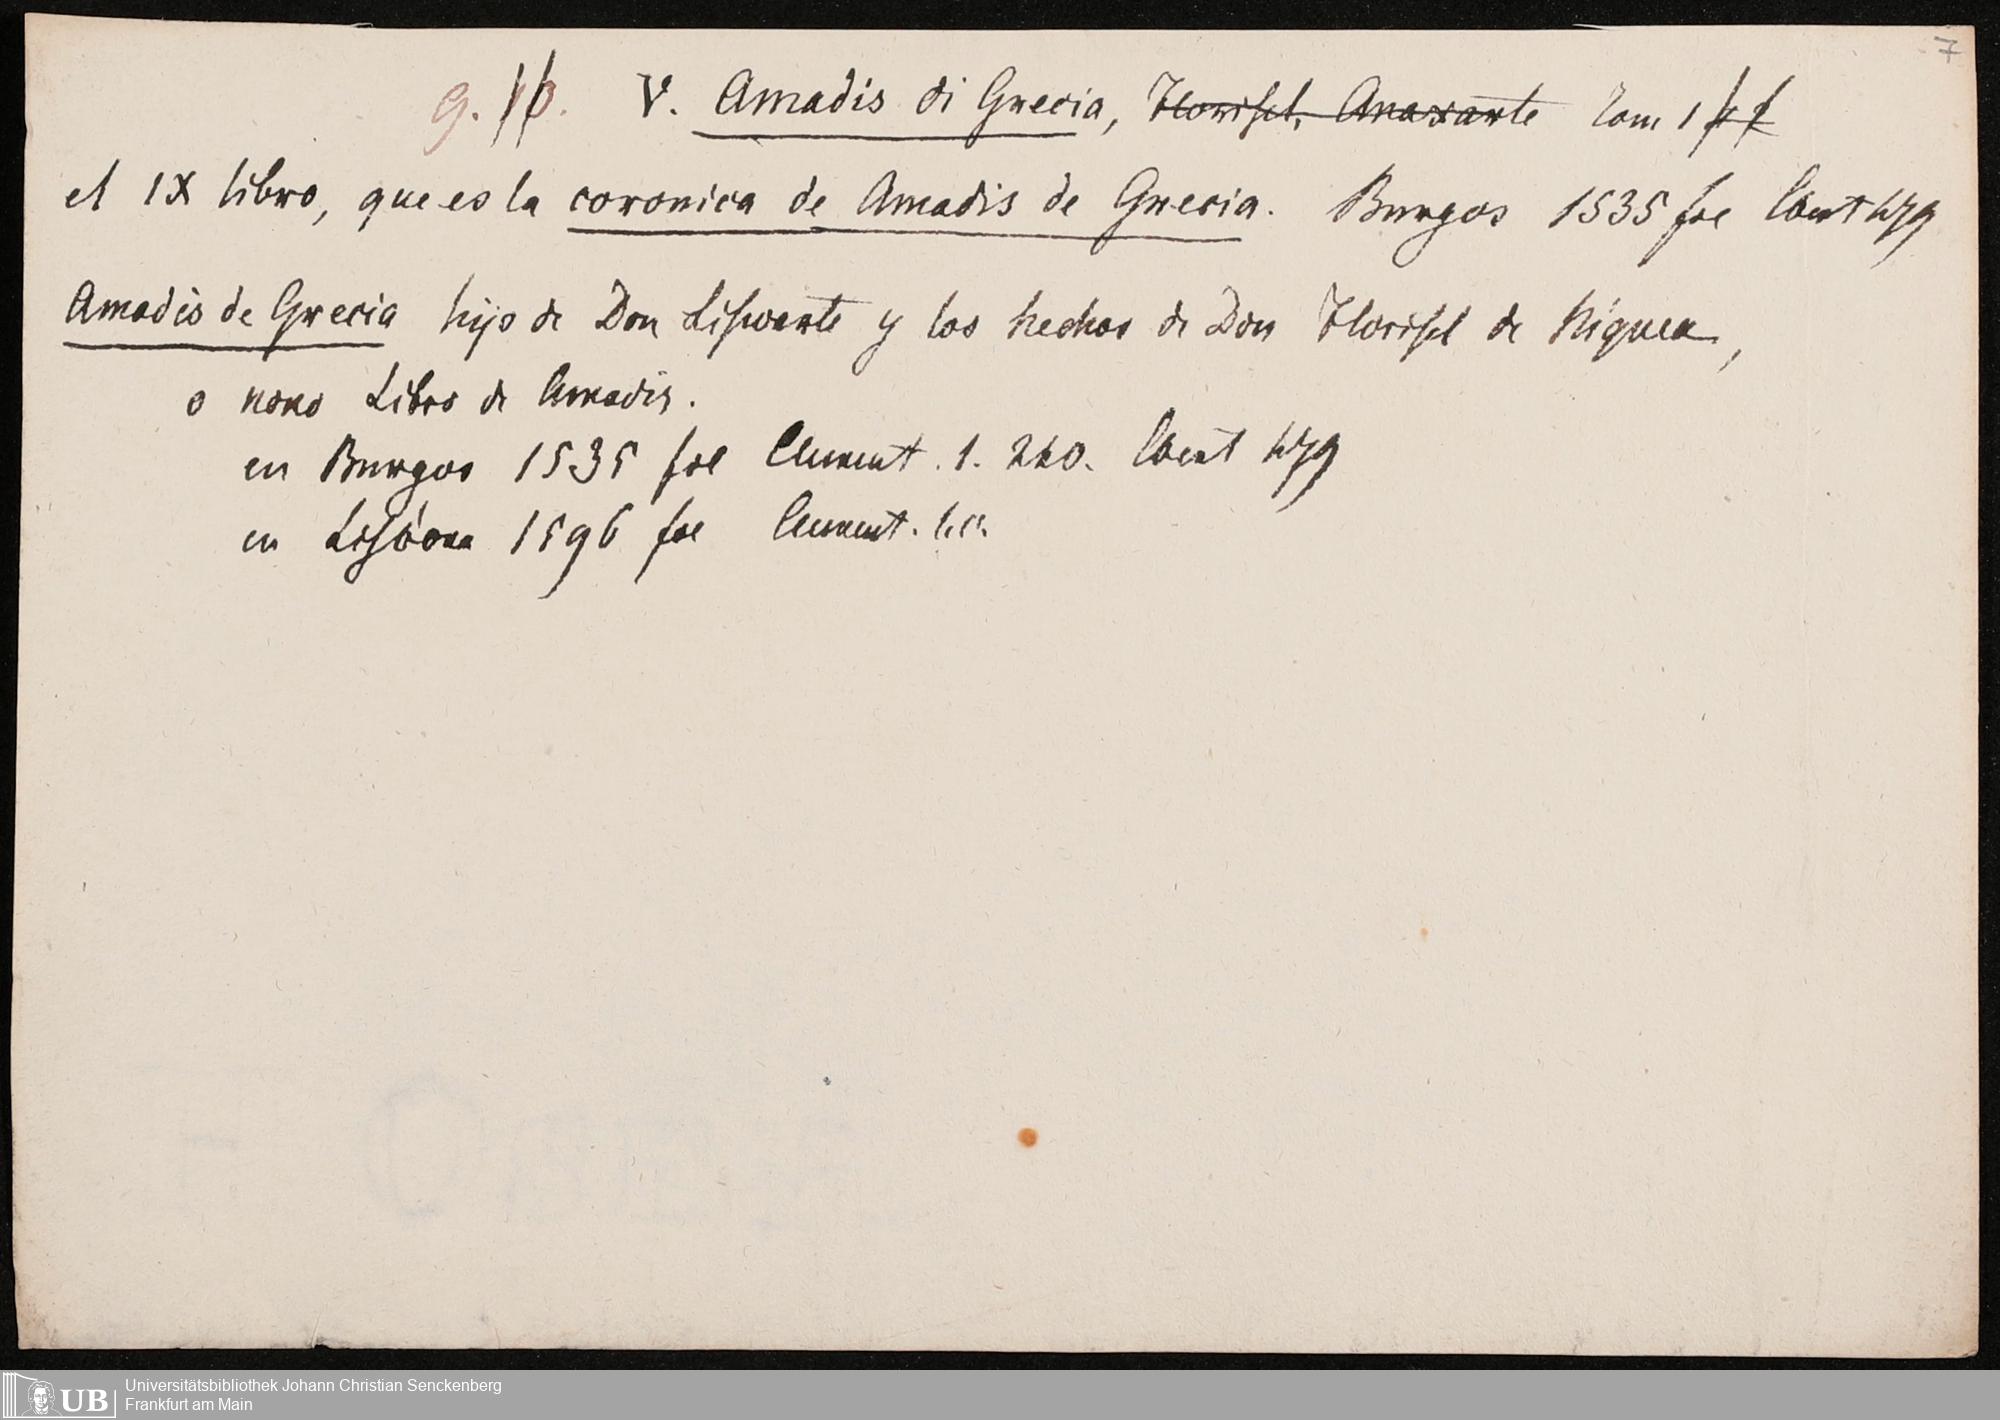 7
9. V. Amadis di Grecia, Florisel, Anaxarte Tom 1
el IX libro, que es la coronica de Amadis de Grecia. Burgos 1535 fol Ebert 479
Amadis de Grecia hijo de Don Lisuarte y los hechos de Don Florisel de Niquea,
o nono Libro de Amadis.
en Burgos 1535 fol Clement. 1. 240. Ebert 479
en Lisbona 1596 fol Clement. l.c.
UB Universitätsbibliothek Johann Christian Senckenberg
Frankfurt am Main